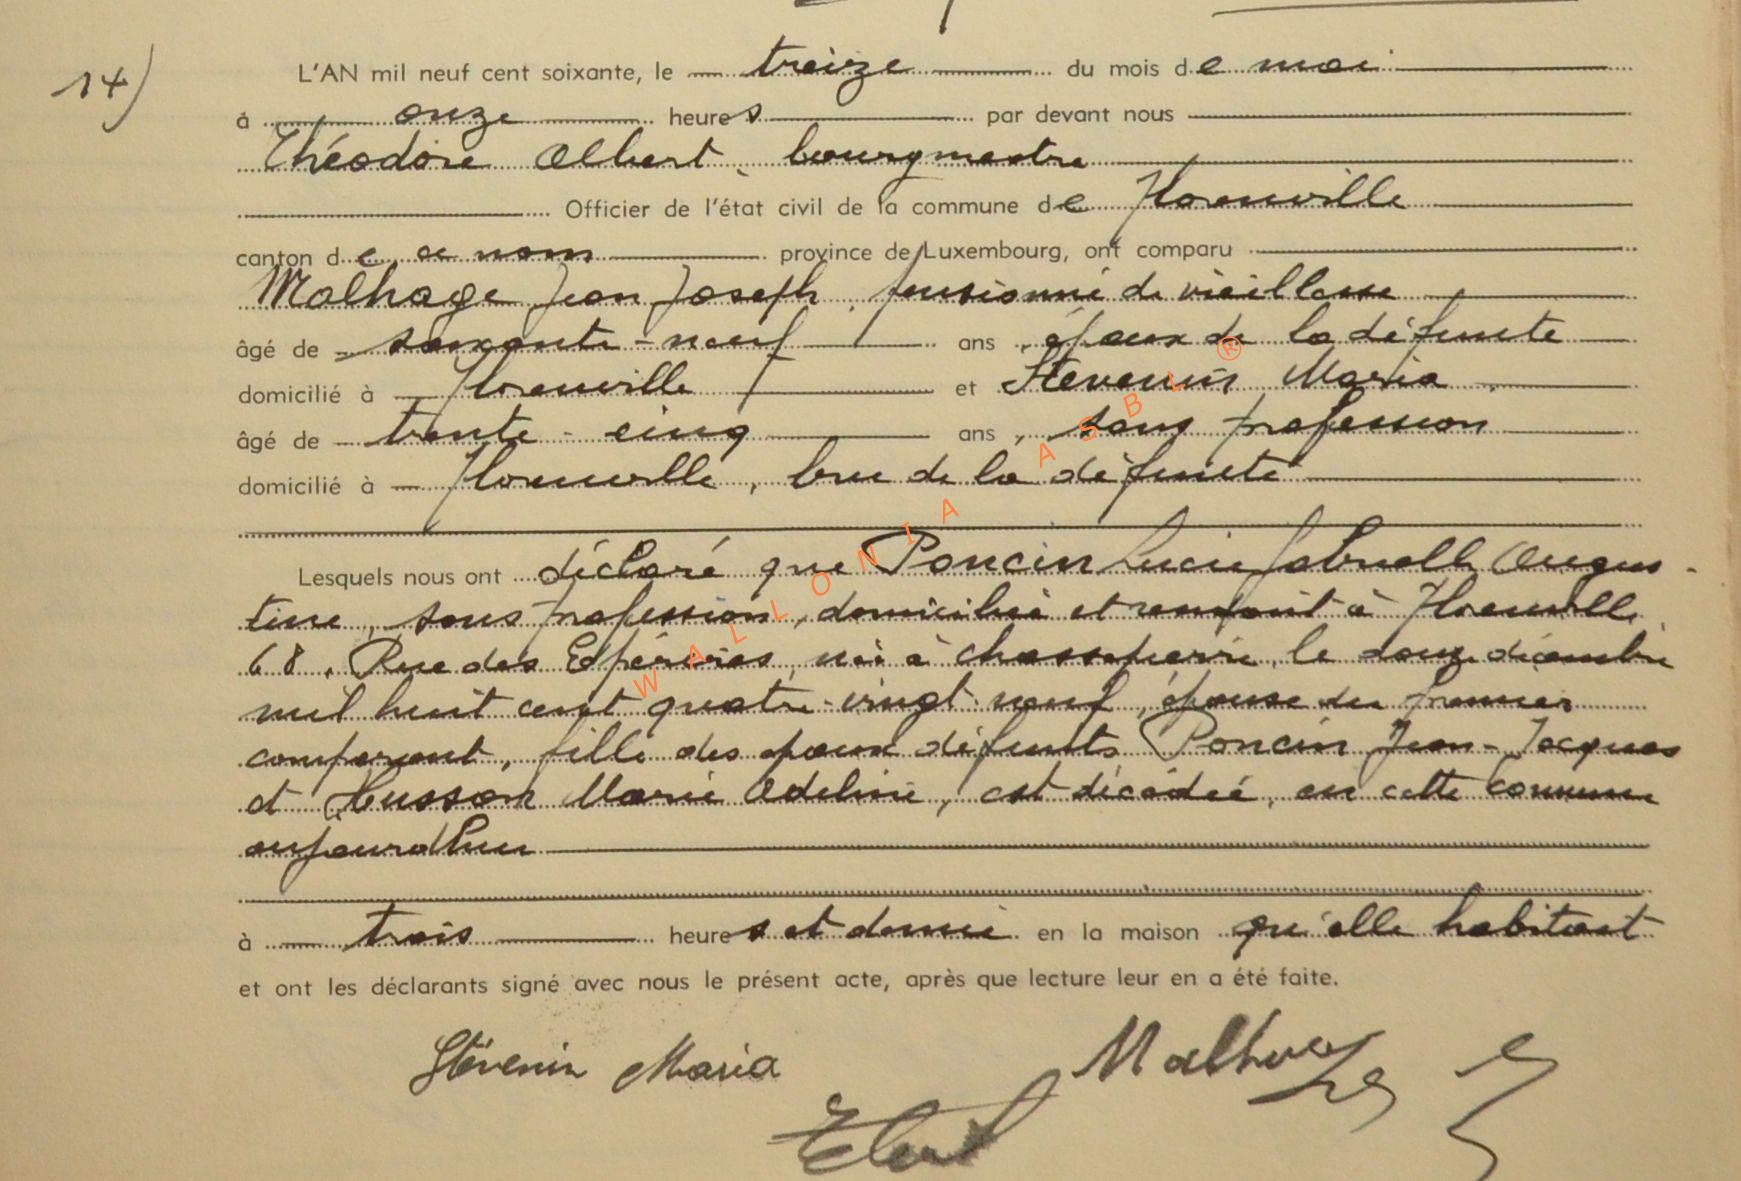 14)
L'AN mil neuf cent soixante, le treize du mois de mai
à onze heures par devant nous
Théodore Albert, bourgmestre
Officier de l'état civil de la commune de Florenville
canton de ce nom province de Luxembourg, ont comparu
Malhage Jean Joseph, pensionné de vieillesse
âgé de soixante-neuf ans, époux de la défunte
domicilié à Florenville et Stevenin Maria,
âgé de trente-cinq ans, sans profession
domicilié à Florenville, bru de la défunte
Lesquels nous ont déclaré que Poncin Lucie Augus-
tine, sans profession, domiciliée et à Florenville
68, Rue des Epérires, née à Chassepierre, le douze décembre
mil huit cent quatre-vingt-neuf, épouse du premier
comparant, fille des époux défunts Poncin Jean-Jacques
et Husson Marie Adeline, est décédée, en cette commune
aujourd'hui
à trois heures et demie en la maison qu'elle habitait
et ont les déclarants signé avec nous le présent acte, après que lecture leur en a été faite.
Stévenin Maria Malhage
WALLONIA ASBL ®